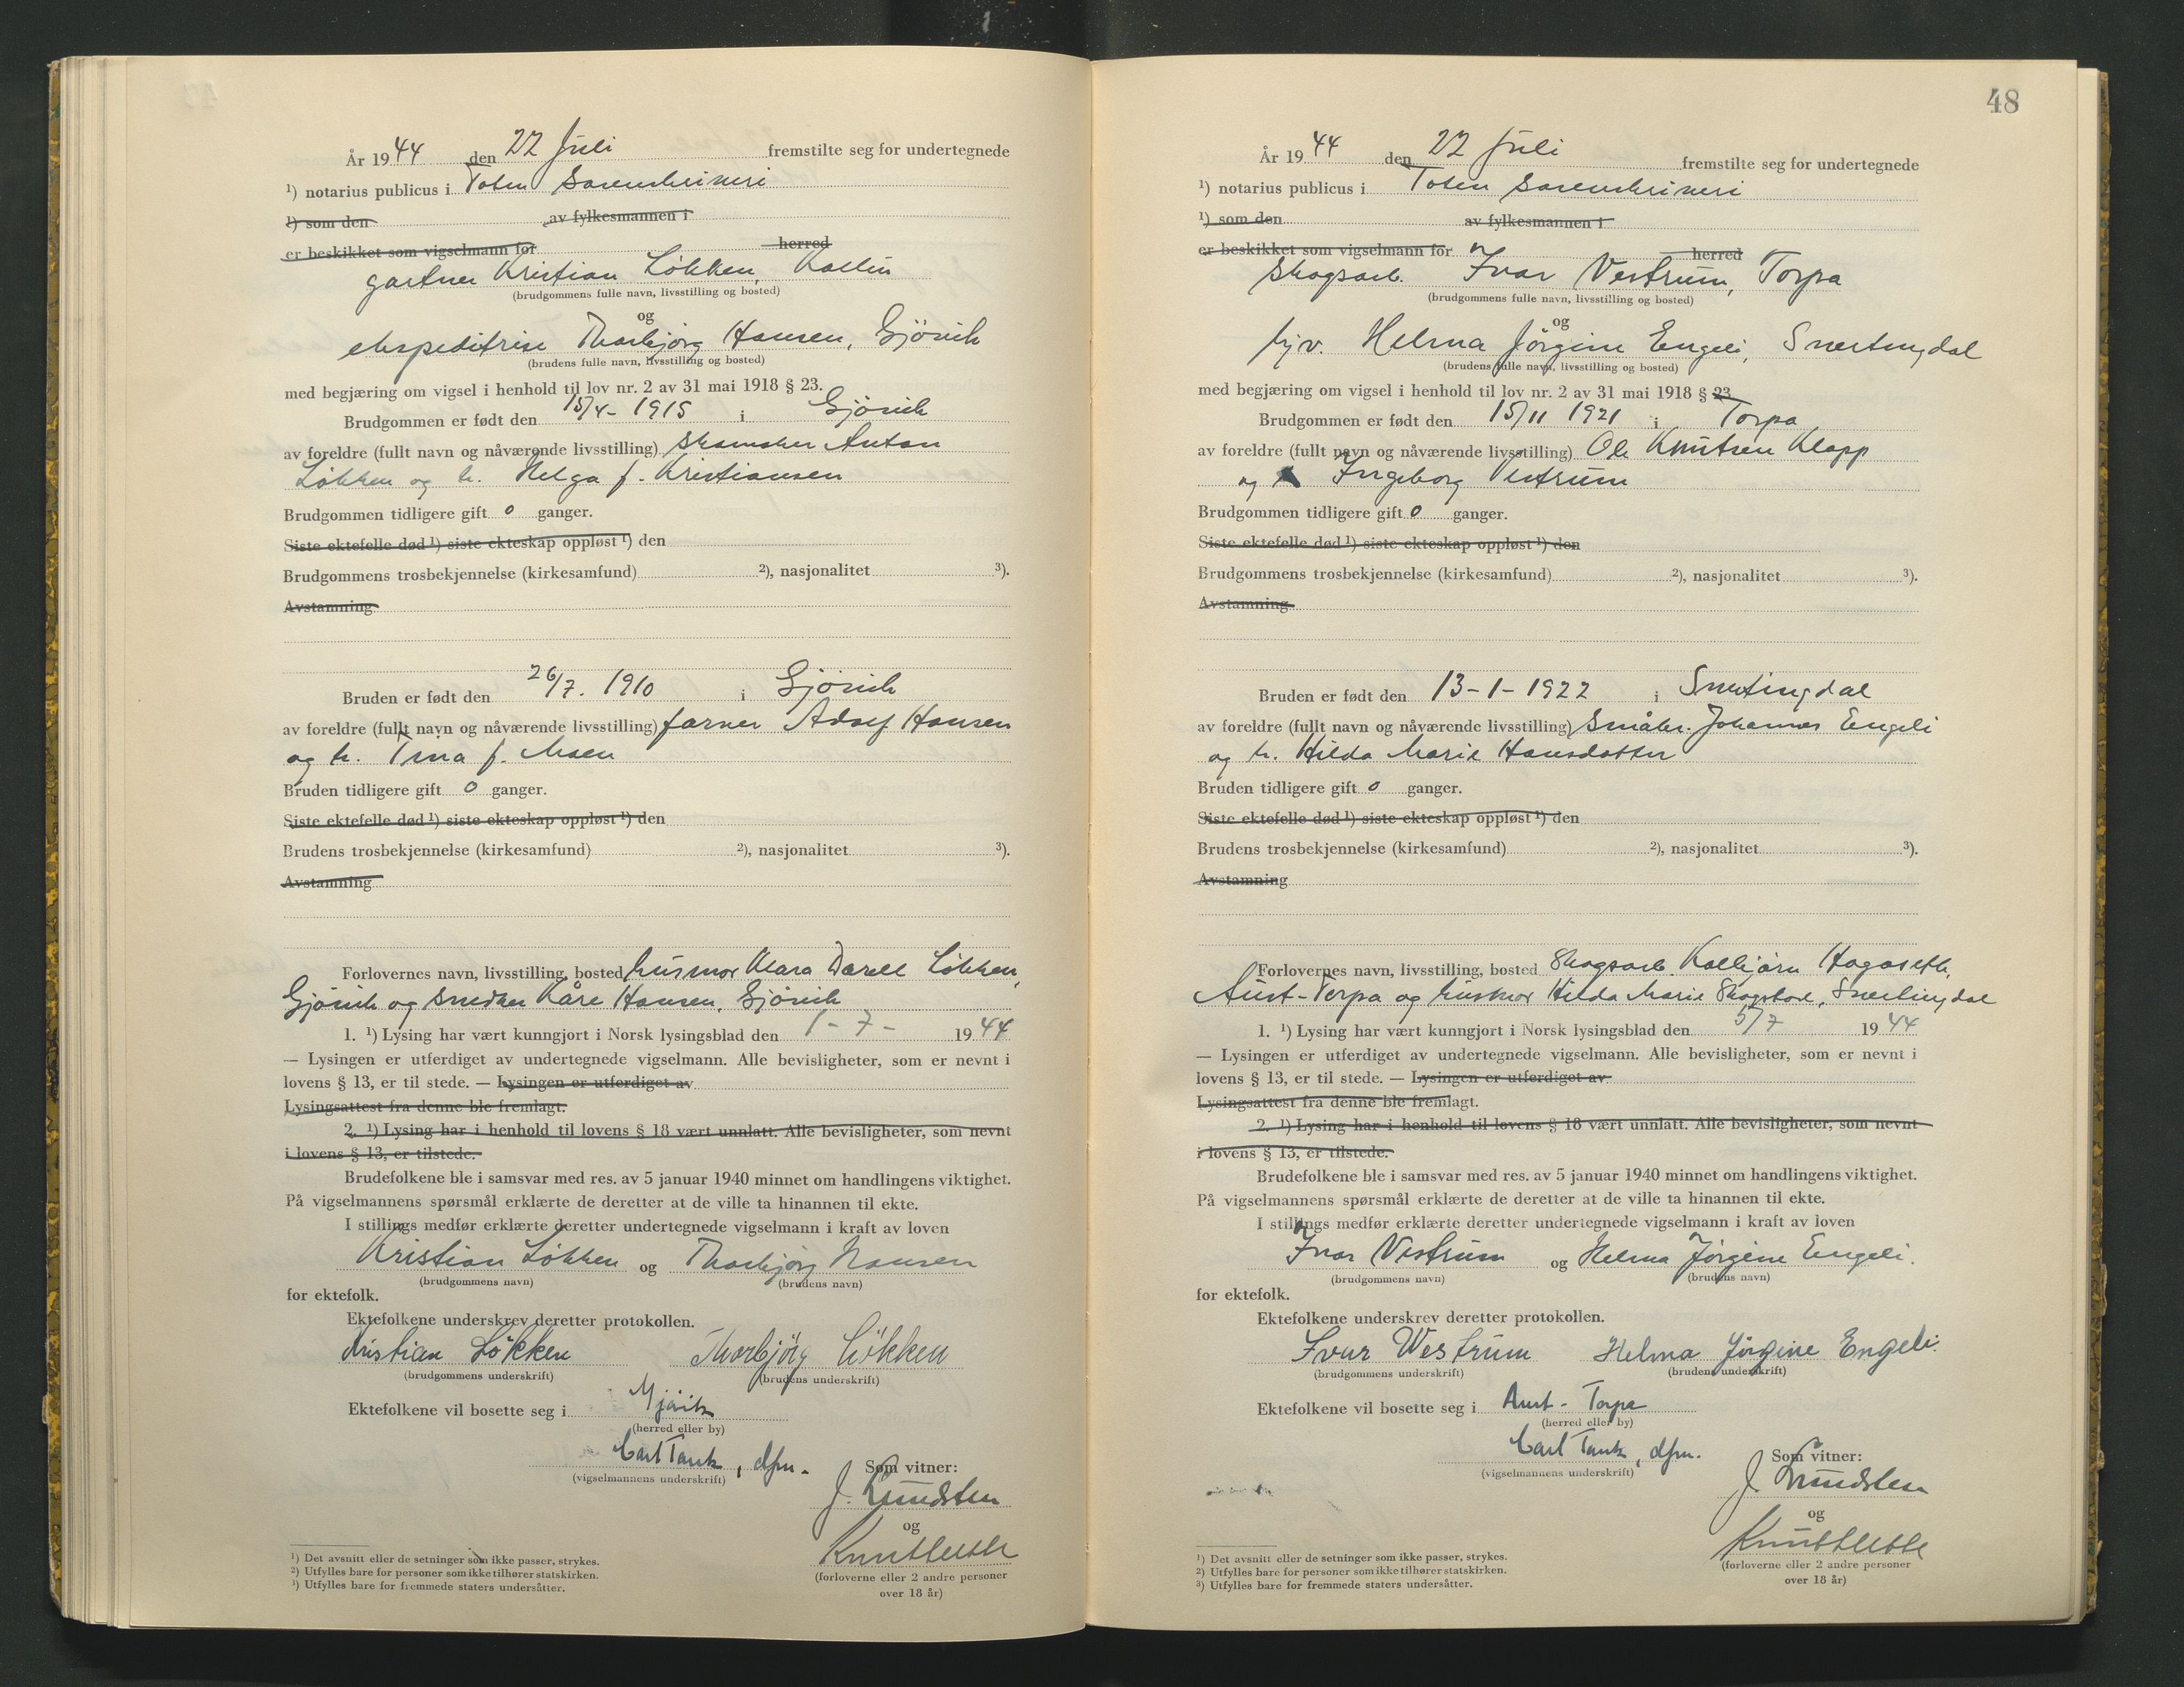 År 1944 den 22 Juli fremstilte seg for undertegnede
¹) notarius publicus i Toten Sorenskriveri
¹) som den av fylkesmannen i
er beskikket som vigselmann for herred
gartner Kristian Løkken, Kolbu
(brudgommens fulle navn, livsstilling og bosted)
og
ekspeditrise Thorbjørg Hansen, Gjövik
(brudens fulle navn, livsstilling og bosted)
med begjæring om vigsel i henhold til lov nr. 2 av 31 mai 1918 § 23.
Brudgommen er født den 15/4- 1915 i Gjövik
av foreldre (fullt navn og nåværende livsstilling) skomaker Anton
Løkken og h. Helga f. Kristiansen
Brudgommen tidligere gift 0 ganger.
Siste ektefelle død ¹) siste ekteskap oppløst ¹) den
Brudgommens trosbekjennelse (kirkesamfund) ²), nasjonalitet ³).
Avstamning
Bruden er født den 26/7. 1910 i Gjövik
av foreldre (fullt navn og nåværende livsstilling) farver Adolf Hansen
og h. Tina f. Moen
Bruden tidligere gift 0 ganger.
Siste ektefelle død ¹) siste ekteskap oppløst ¹) den
Brudens trosbekjennelse (kirkesamfund) ²), nasjonalitet ³).
Avstamning
Forlovernes navn, livsstilling, bosted husmor Klara Løkken,
Gjövik og snedker Kåre Hansen, Gjövik
1. ¹) Lysing har vært kunngjort i Norsk lysingsblad den 1-7- 1944
— Lysingen er utferdiget av undertegnede vigselmann. Alle bevisligheter, som er nevnt i
lovens § 13, er til stede. — Lysingen er utferdiget av
Lysingsattest fra denne ble fremlagt.
2. ¹) Lysing har i henhold til lovens § 18 vært unnlatt. Alle bevisligheter, som nevnt
i lovens § 13, er tilstede.
Brudefolkene ble i samsvar med res. av 5 januar 1940 minnet om handlingens viktighet.
På vigselmannens spørsmål erklærte de deretter at de ville ta hinannen til ekte.
I stillings medfør erklærte deretter undertegnede vigselmann i kraft av loven
Kristian Løkken og Thorbjørg Hansen
(brudgommens navn) (brudens navn)
for ektefolk.
Ektefolkene underskrev deretter protokollen.
Kristian Løkken Thorbjörg Løkken
(brudgommens underskrift) (brudens underskrift)
Ektefolkene vil bosette seg i Gjövik
(herred eller by)
Carl Tank, dfm.
(vigselmannens underskrift)
Som vitner:
J. Lundsten
og
(forloverne eller 2 andre personer
over 18 år)
¹) Det avsnitt eller de setninger som ikke passer, strykes.
²) Utfylles bare for personer som ikke tilhører statskirken.
³) Utfylles bare for fremmede staters undersåtter.
48
År 1944 den 22 Juli fremstilte seg for undertegnede
¹) notarius publicus i Toten Sorenskriveri
¹) som den av fylkesmannen i
er beskikket som vigselmann for herred
skogsarb. Ivar Vestrum, Torpa
(brudgommens fulle navn, livsstilling og bosted)
og
hjv. Helma Jörgine Engeli, Snertingdal
(brudens fulle navn, livsstilling og bosted)
med begjæring om vigsel i henhold til lov nr. 2 av 31 mai 1918 § 23.
Brudgommen er født den 15/11 1921 i Torpa
av foreldre (fullt navn og nåværende livsstilling) Ole Knutsen Klapp
og Ingeborg Vestrum
Brudgommen tidligere gift 0 ganger.
Siste ektefelle død ¹) siste ekteskap oppløst ¹) den
Brudgommens trosbekjennelse (kirkesamfund) ²), nasjonalitet ³).
Avstamning
Bruden er født den 13-1-1922 i Snertingdal
av foreldre (fullt navn og nåværende livsstilling) Småbr. Johannes Engeli
og h. Hilda Marie Hansdatter
Bruden tidligere gift 0 ganger.
Siste ektefelle død ¹) siste ekteskap oppløst ¹) den
Brudens trosbekjennelse (kirkesamfund) ²), nasjonalitet ³).
Avstamning
Forlovernes navn, livsstilling, bosted Skogsarb. Kolbjørn Hagaseth,
Aust-Torpa og husmor Hilda Marie Skogstad, Snertingdal
1. ¹) Lysing har vært kunngjort i Norsk lysingsblad den 5/7 1944
— Lysingen er utferdiget av undertegnede vigselmann. Alle bevisligheter, som er nevnt i
lovens § 13, er til stede. — Lysingen er utferdiget av
Lysingsattest fra denne ble fremlagt.
2. ¹) Lysing har i henhold til lovens § 18 vært unnlatt. Alle bevisligheter, som nevnt
i lovens § 13, er tilstede.
Brudefolkene ble i samsvar med res. av 5 januar 1940 minnet om handlingens viktighet.
På vigselmannens spørsmål erklærte de deretter at de ville ta hinannen til ekte.
I stillings medfør erklærte deretter undertegnede vigselmann i kraft av loven
Ivar Vestrum og Helma Jørgine Engeli.
(brudgommens navn) (brudens navn)
for ektefolk.
Ektefolkene underskrev deretter protokollen.
Ivar Westrum Helma Jörgine Engeli.
(brudgommens underskrift) (brudens underskrift)
Ektefolkene vil bosette seg i Aust-Torpa
(herred eller by)
Carl Tank, dfm.
(vigselmannens underskrift)
Som vitner:
J. Lundsten
og
(forloverne eller 2 andre personer
over 18 år)
¹) Det avsnitt eller de setninger som ikke passer, strykes.
²) Utfylles bare for personer som ikke tilhører statskirken.
³) Utfylles bare for fremmede staters undersåtter.